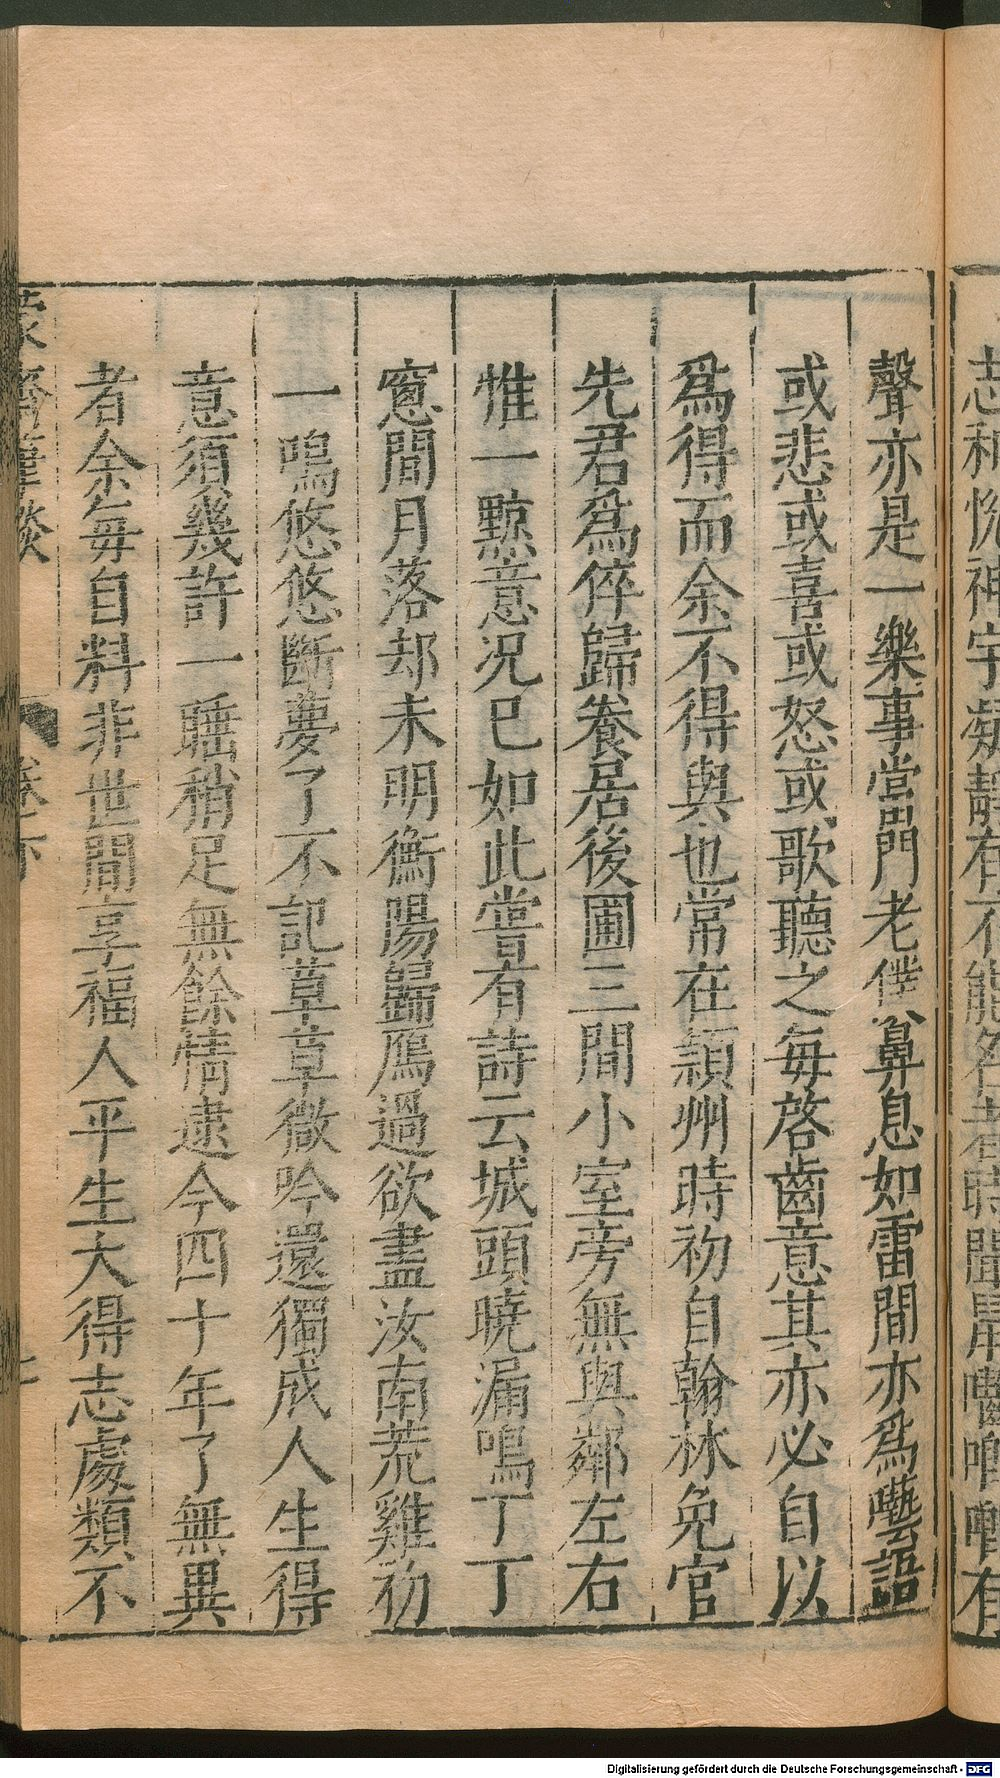 志和怳神宇凝靜有不能名者時聞鼠嚙唧唧有
聲亦是一樂事當門老僕鼻息如雷間亦爲囈語
或悲或喜或怒或歌聽之每啓齒意其亦必自以
爲得而余不得與也常在潁州時初自翰林免官
先君爲倅歸養居後圃三間小室旁無與鄰左右
惟一黥意況已如此嘗有詩云城頭曉漏鳴丁丁
窻間月落却未明衡陽歸鴈過欲盡汝南荒雞初
一鳴悠悠斷夢了不記草草微吟還獨成人生得
意須幾許一睡稍足無餘情逮今四十年了無異
者余每自料非世間享福人平生大得志處類不
蒙齋筆談
卷下
Digitalisierung gefördert durch die Deutsche Forschungsgemeinschaft - DFG